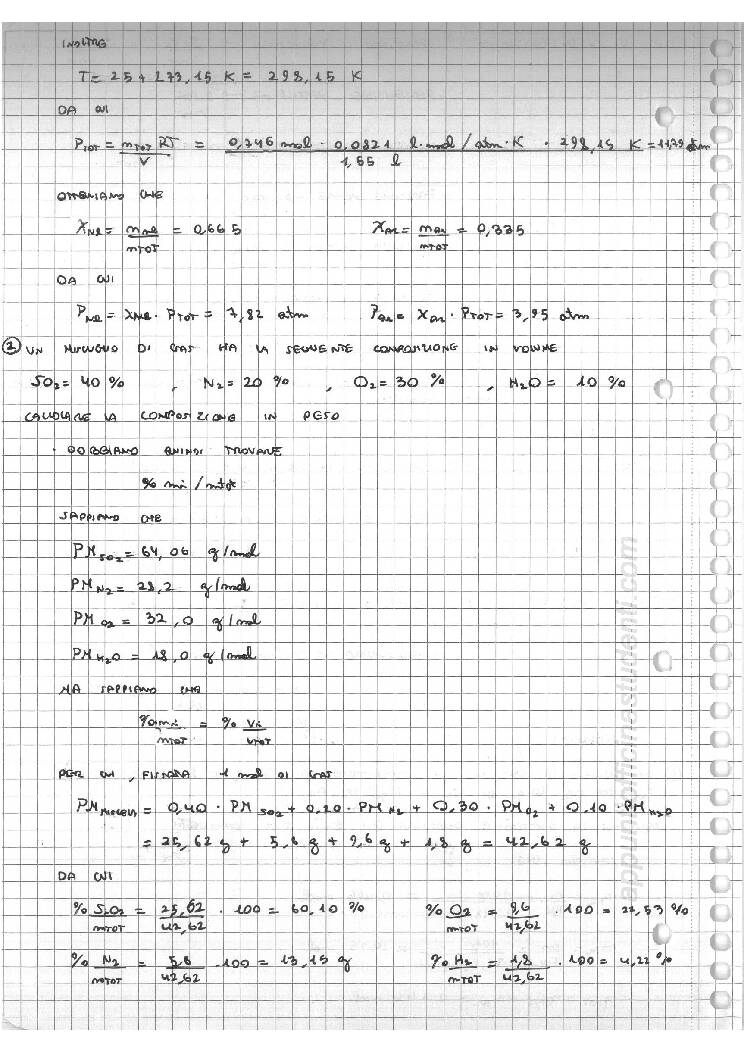 INOLTRE
T = 25 + 273,15 K = 298,15 K
DA CUI
PTOT = nTOT RT / V = 0,746 mol · 0,0821 l·mol / atm·K · 298,15 K / 1,55 l = 11,79 atm
OTTENIAMO CHE
XN2 = nN2 / nTOT = 0,665 XAr = nAr / nTOT = 0,335
DA CUI
PN2 = XN2 · PTOT = 7,82 atm PAr = XAr · PTOT = 3,95 atm
② UN MISCUGLIO DI GAS HA LA SEGUENTE COMPOSIZIONE IN VOLUME
SO2 = 40 % , N2 = 20 % , O2 = 30 % , H2O = 10 %
CALCOLARE LA COMPOSIZIONE IN PESO
· DOBBIAMO QUINDI TROVARE
% mi / mtot
SAPPIAMO CHE
PM SO2 = 64,06 g/mol
PM N2 = 28,2 g/mol
PM O2 = 32,0 g/mol
PM H2O = 18,0 g/mol
MA SAPPIAMO CHE
% ni / nTOT = % Vi / VTOT
PER CUI, FISSATA 1 mol DI GAS
PM MISCELA = 0,40 · PM SO2 + 0,20 · PM N2 + 0,30 · PM O2 + 0,10 · PM H2O
= 25,62 g + 5,6 g + 9,6 g + 1,8 g = 42,62 g
DA CUI
% SO2 / mTOT = 25,62 / 42,62 · 100 = 60,10 % % O2 / mTOT = 9,6 / 42,62 · 100 = 22,53 %
% N2 / mTOT = 5,6 / 42,62 · 100 = 13,15 g % H2 / mTOT = 1,8 / 42,62 · 100 = 4,22 %
appuntiofficinastudenti.com